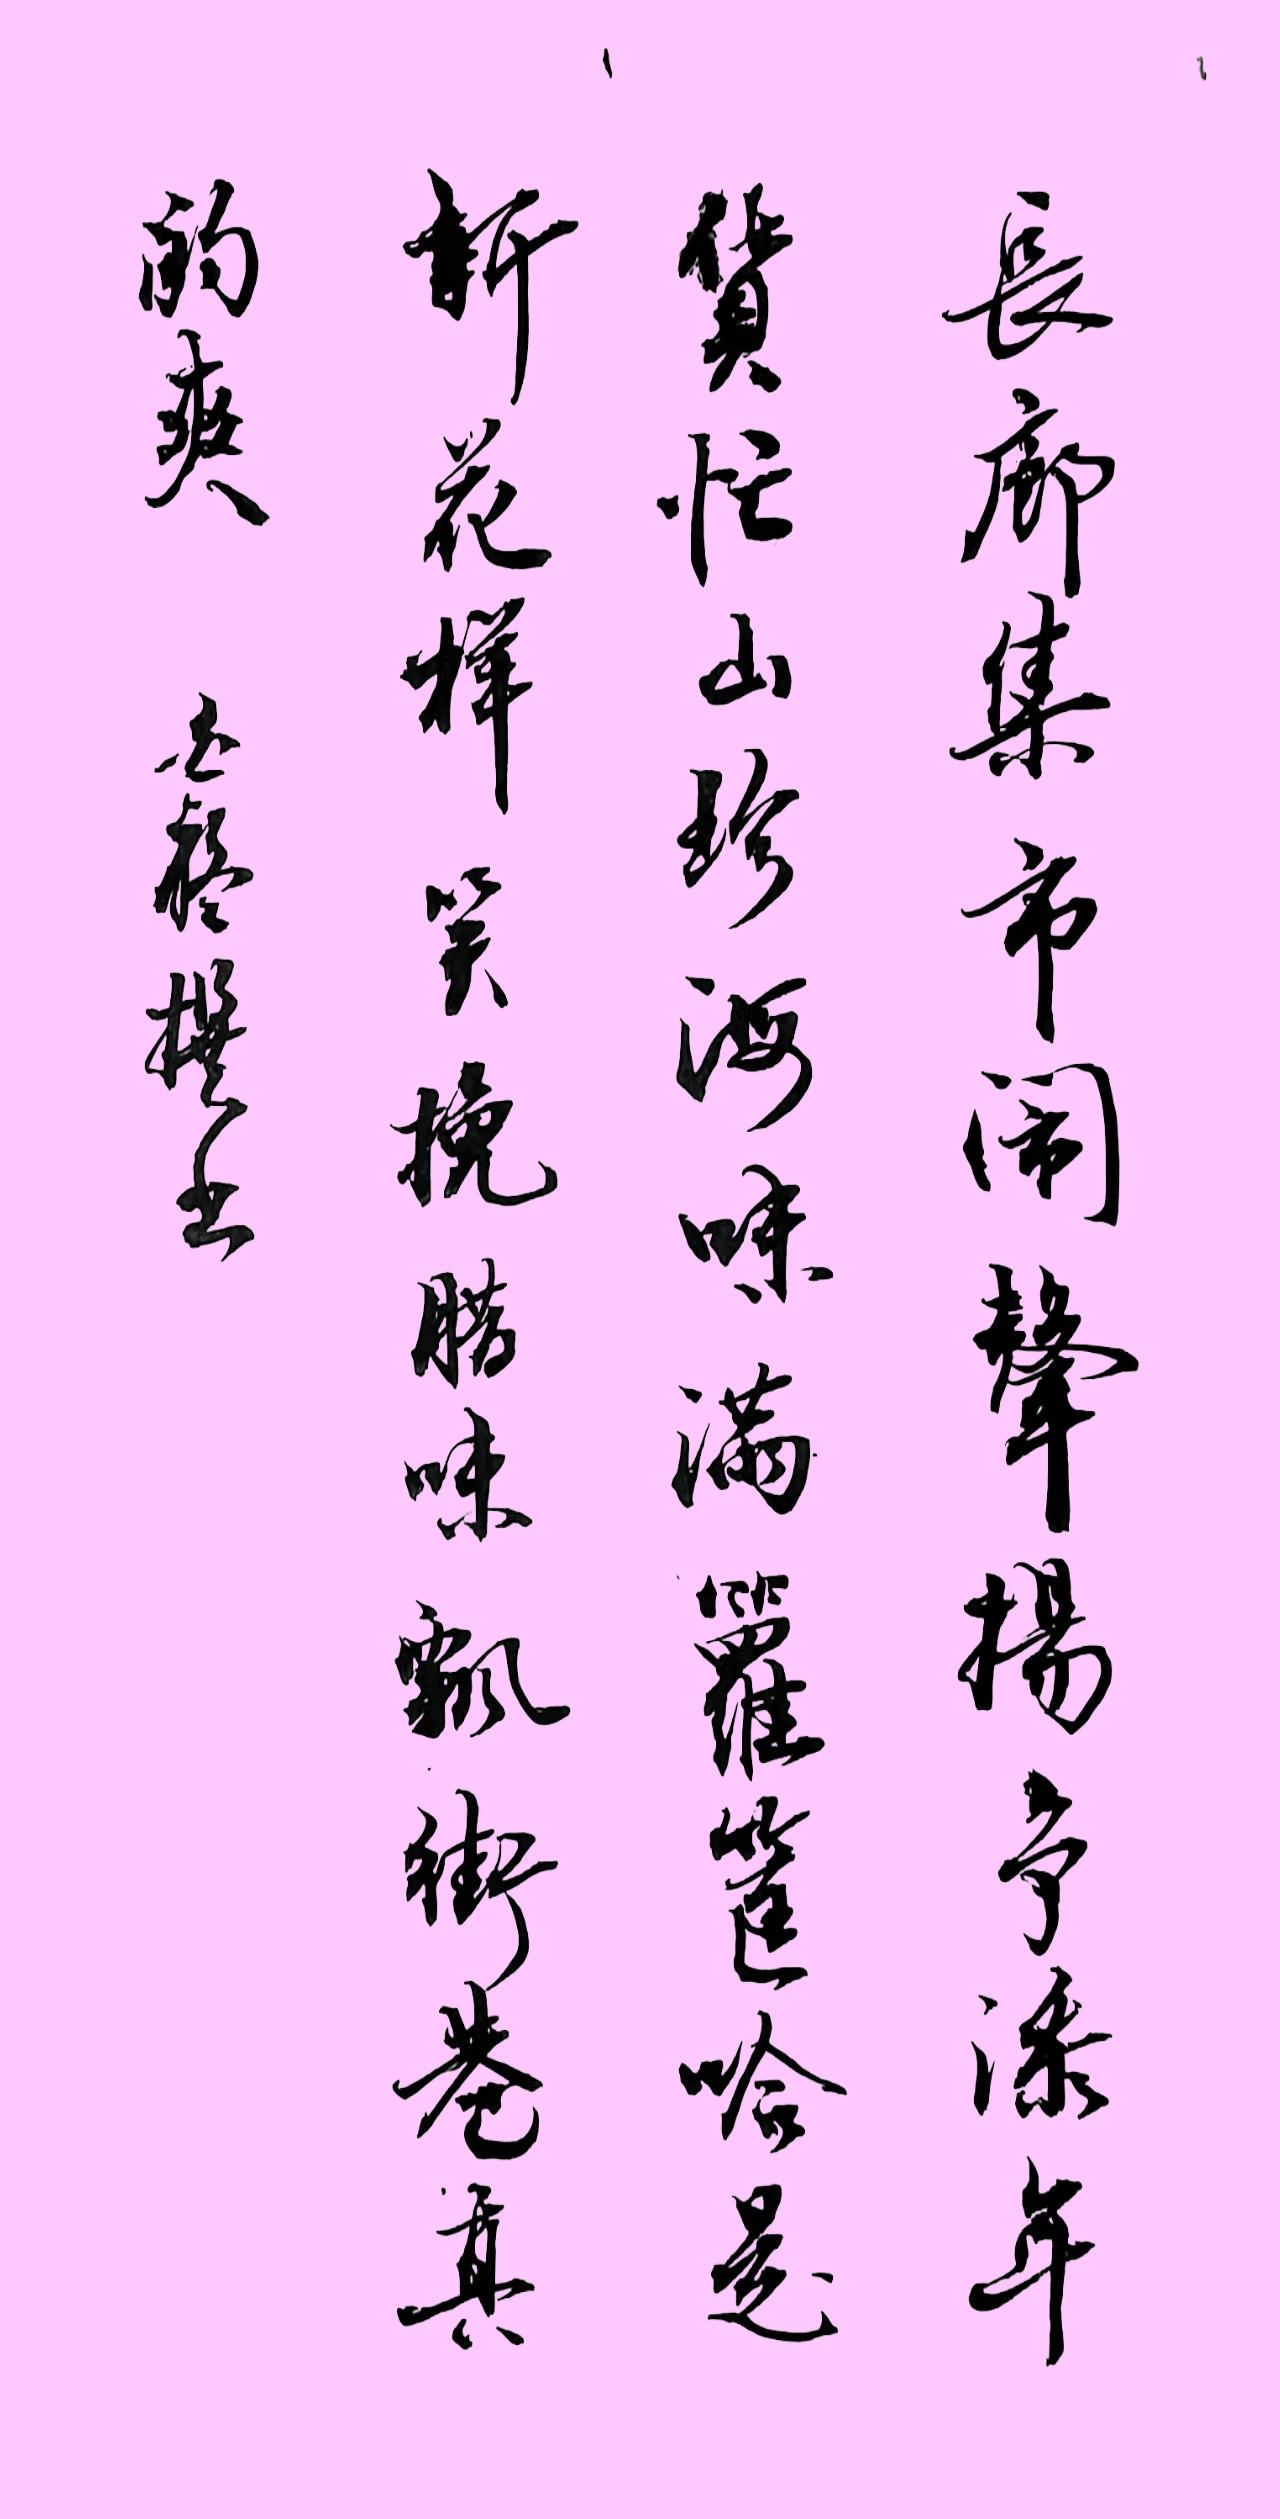 長廊集市鬧聲揚寺漆年
貨忙山珍海味滿籮筐哈是
新花樣笑挽勝味飄街巷真
的爽
書